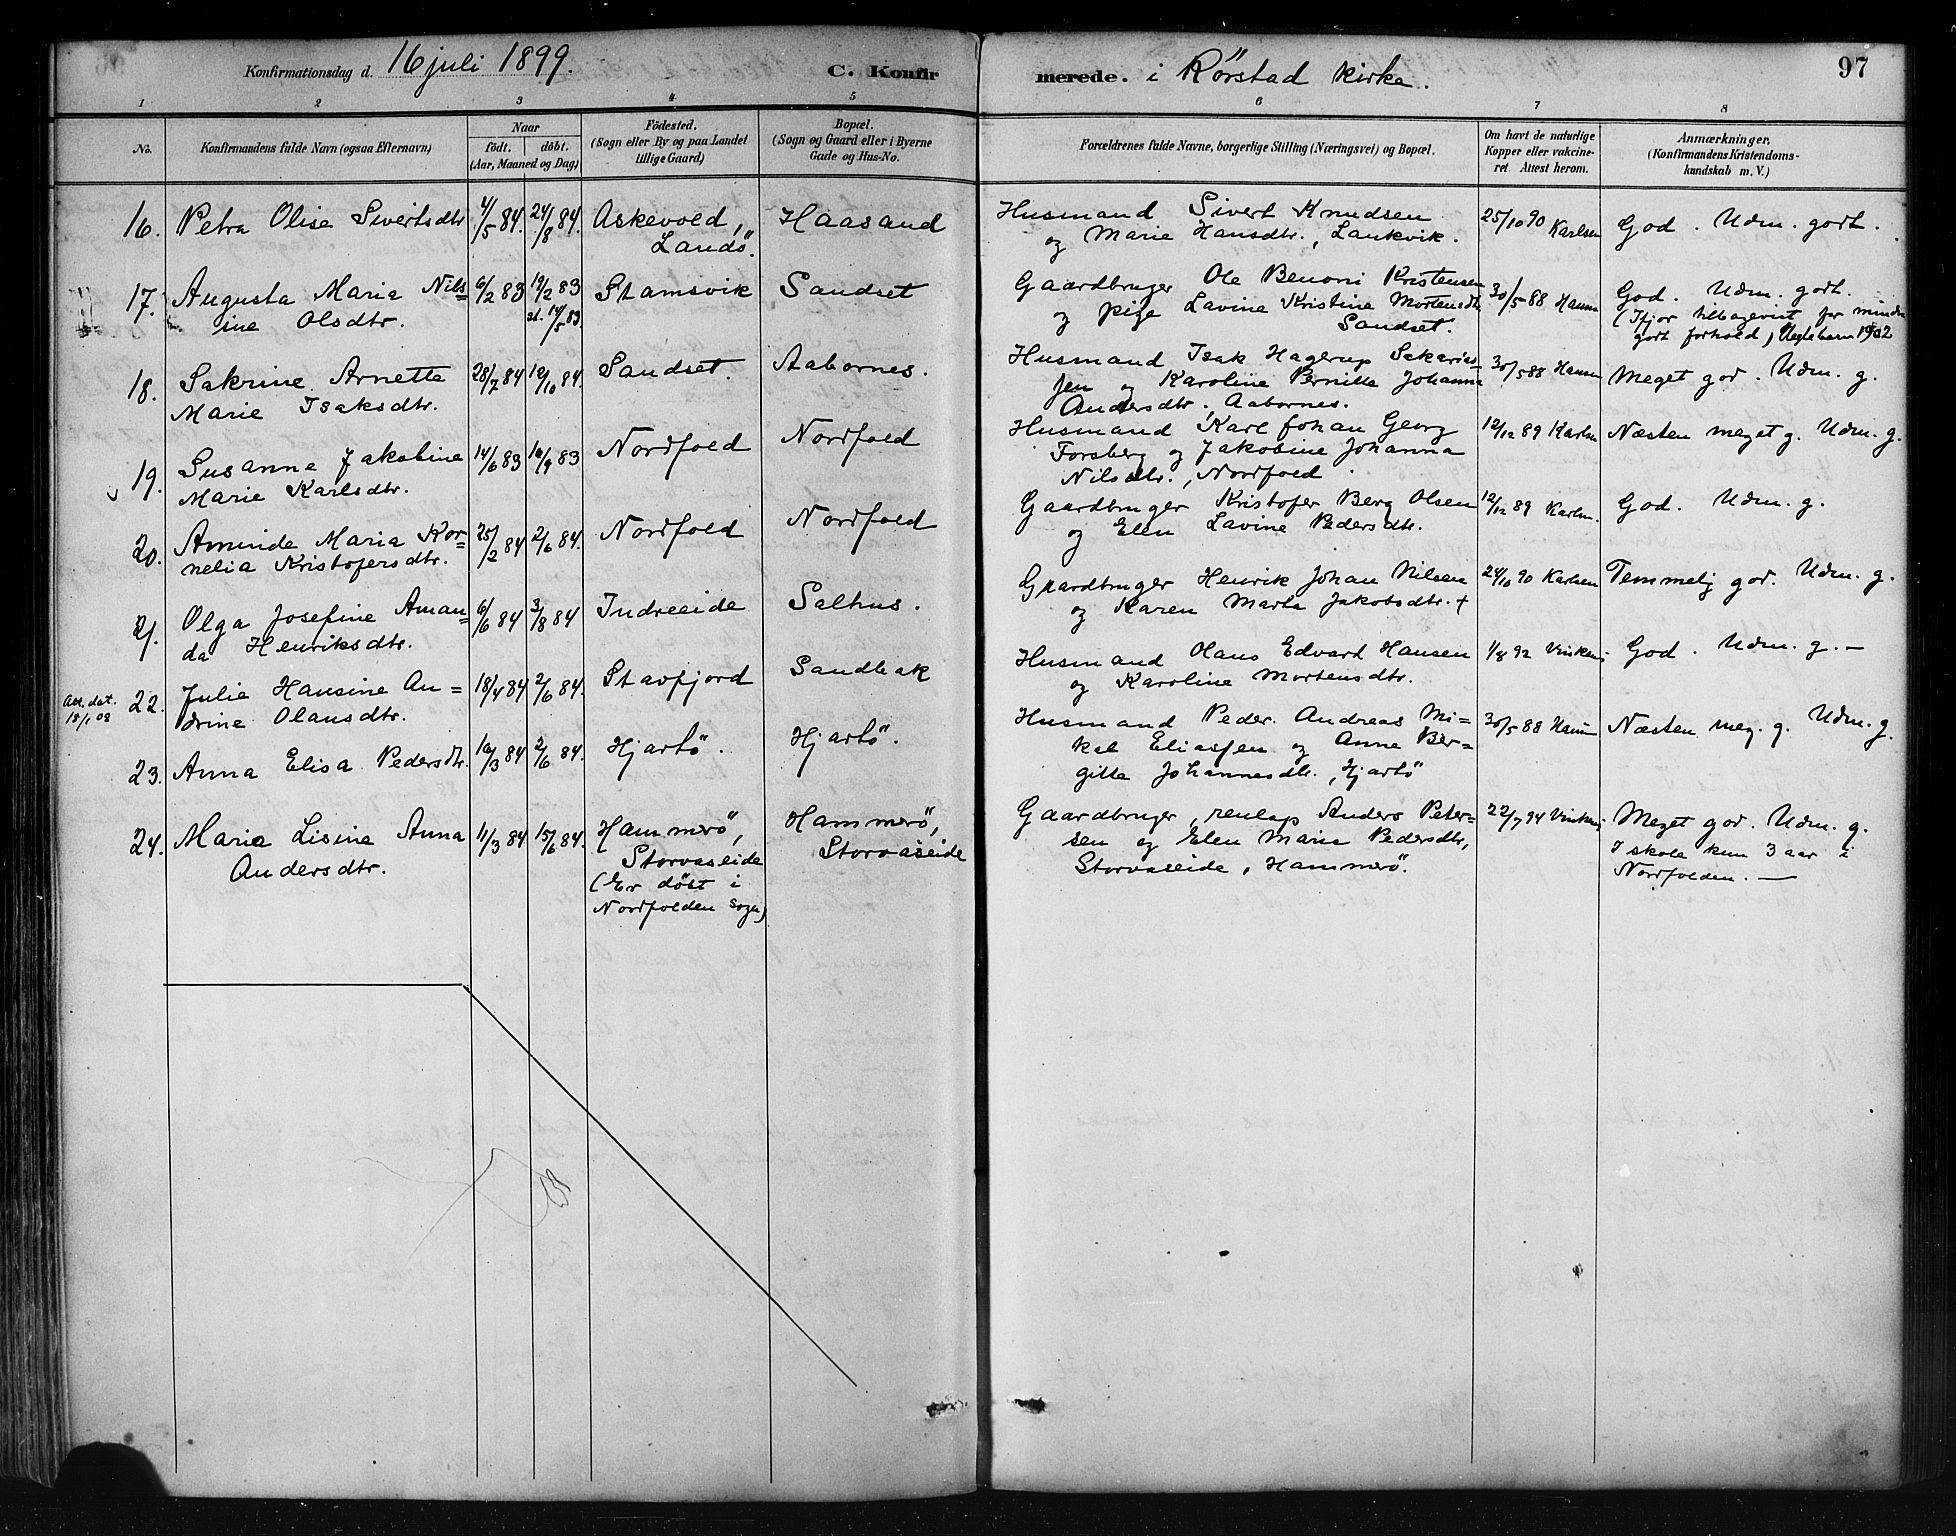 Konfirmationsdag d. 16 juli 1899. C. Konfirmerede. i Rörstad kirke. 97
1 2 3 4 5 6 7 8
No.
Konfirmandens fulde Navn (ogsaa Efternavn)
Naar
födt. döbt.
(Aar, Maaned og Dag)
Födested.
(Sogn eller By og paa Landet
tillige Gaard)
Bopæl.
(Sogn og Gaard eller i Byerne
Gade og Hus-No.
Forældrenes fulde Navne, borgerlige Stilling (Næringsvei) og Bopæl.
Om havt de naturlige
Kopper eller vakcine-
ret. Attest herom.
Anmærkninger.
(Konfirmandens Kristendoms-
kundskab m. V.)
16. Petra Olise Sivertsdtr 4/5 84. 24/8 84. Askevold, Landö. Haasand
Husmand Sivert Knudsen
og Marie Hansdtr., Lankvik.
25/10 90 Karlsen God. Udm. godt.
17. Augusta Maria Nils=
ine Olsdtr.
6/2 83 19/2 83
st. 14/5 83.
Stamsvik Sandset
Gaardbruger Ole Benoni Kristensen
og pige Lavine Kristine Mortensdtr
Sandset.
30/5 88 Hamm God. Udm. godt.
(Ifjor tilbagevist for mindre
godt forhold,
18. Sakrine Arnette
Marie Isaksdtr.
28/7 84 12/10 84. Sandset. Aabornes.
Husmand Isak Hagerup Sakarias=
sen og Karoline Pernille Johanna
Andersdtr., Aabornes.
30/5 88 Hamm Meget god. Udm. g.
19. Susanne Jakobine
Marie Karlsdtr.
14/6 83 16/9 83 Nordfold Nordfold
Husmand Karl Johan Georg
Forsberg og Jakobine Johanna
Nilsdtr., Nordfold
12/12 89 Karlsen Næsten meget g. Udm. g.
20. Aminde Maria Kor=
nelia Kristofersdtr.
25/2 84 2/6 84. Nordfold Nordfold
Gaardbruger Kristofer Berg Olsen
og Elen Lavine Pedersdtr.
12/12 89 Karlsn. God. Udm. g.
21. Olga Josefine Aman=
da Henriksdtr.
6/6 84 3/8 84 Indreeide Salhus.
Gaardbruger Henrik Johan Nilsen
og Karen Marta Jakobsdtr. +
24/10 90 Karlsen Temmelig god. Udm. g.
Att. dat.
18/1 08
22. Julie Hansine An=
drine Olausdtr.
18/4 84 2/6 84. Stavfjord Sandbak
Husmand Hans Edvard Hansen
og Karoline Mortensdtr.
1/8 92 God. Udm. g. —
23. Anna Elisa Pedersdtr. 16/3 84 2/6 84. Hjartö. Hjartö.
Husmand Peder Andreas Mi=
kal Eliassen og Anne Ber=
gitte Johannesdtr., Hjartö
30/5 88 Hamm Næsten meg. g. Udm. g.
24. Maria Lisine Anna
Andersdtr.
11/3 84 15/6 84. Hammerö,
Storvaseide
(Er döbt i
Nordfolden sogn)
Hammerö,
Storvaseide
Gaardbruger, renlap Anders Peter=
sen og Elen Maria Pedersdtr,
Storvaseide, Hammerö.
22/7 94 Meget god. Udm. g.
I skole kun 3 aar i
Nordfolden. —